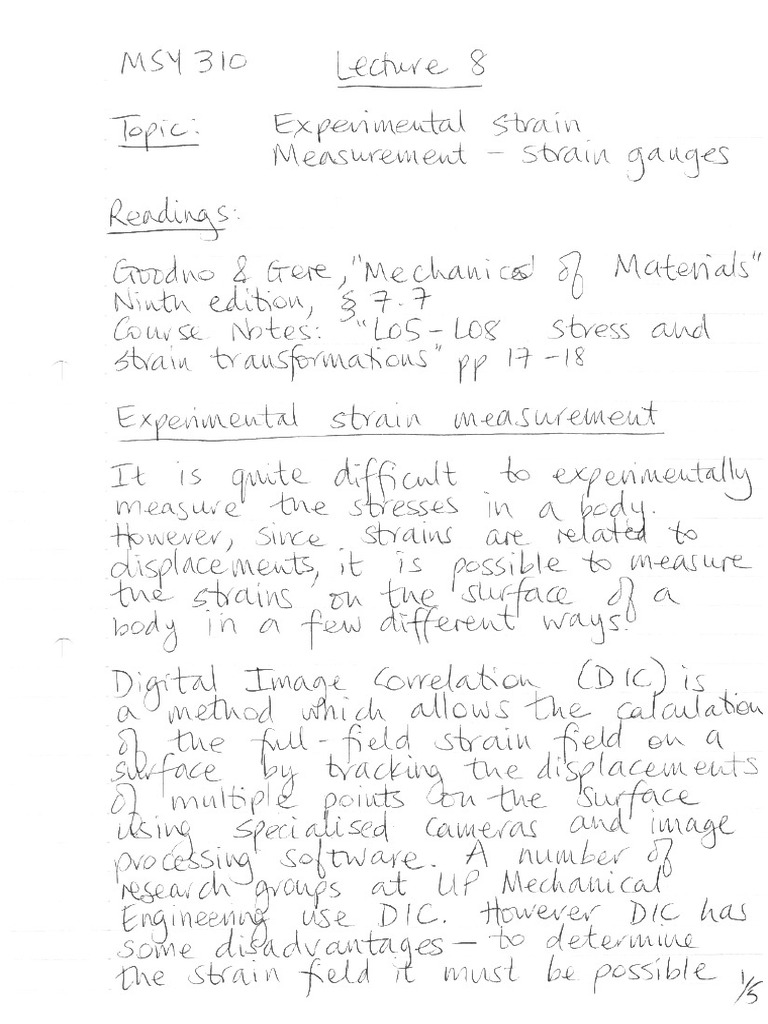 MSY 310 Lecture 8
Topic: Experimental strain
Measurement - strain gauges
Readings:
Goodno & Gere, "Mechanics of Materials"
Ninth edition, § 7.7
Course Notes: "L05-L08 stress and
strain transformations" pp 17-18
Experimental strain measurement
It is quite difficult to experimentally
measure the stresses in a body.
However, since strains are related to
displacements, it is possible to measure
the strains on the surface of a
body in a few different ways.
Digital Image Correlation (DIC) is
a method which allows the calculation
of the full-field strain field on a
surface by tracking the displacements
of multiple points on the surface
using specialised cameras and image
processing software. A number of
research groups at UP Mechanical
Engineering use DIC. However DIC has
some disadvantages - to determine
the strain field it must be possible
1/5